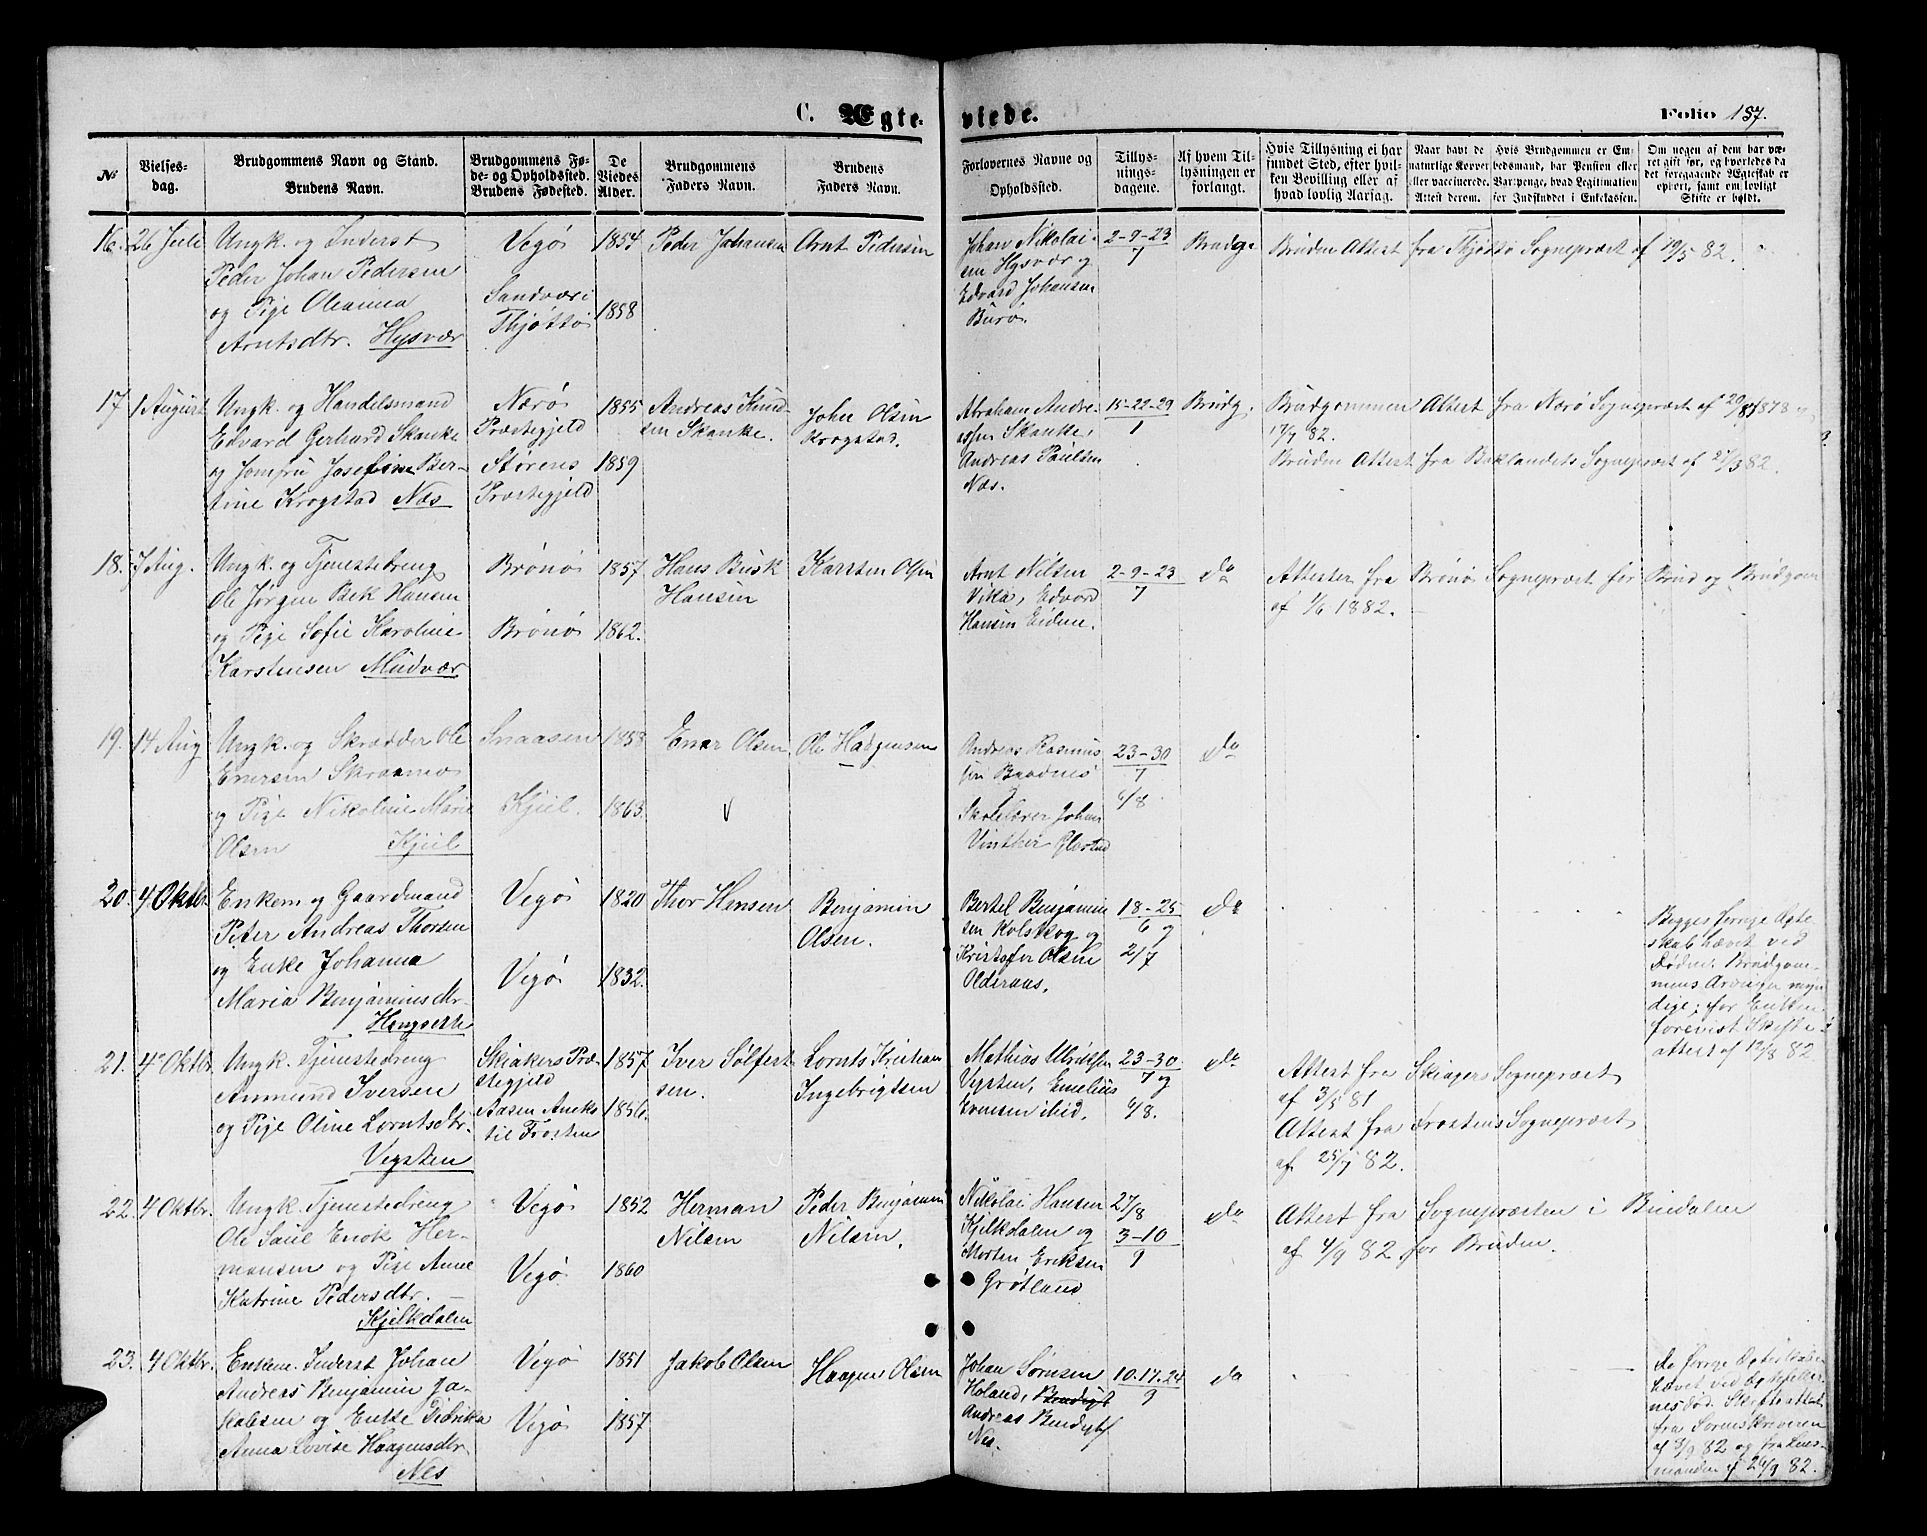 C. Ægte-
viede.
Folio 157.
№
Vielses-
dag.
Brudgommens Navn og Stand.
Brudens Navn.
Brudgommens Fø-
de- og Opholdssted.
Brudens Fødested.
De
Viedes
Alder.
Brudgommens
Faders Navn.
Brudens
Faders Navn.
Forlovernes Navne og
Opholdssted.
Tillys-
nings-
dagene.
Af hvem Til-
lysningen er
forlangt.
Hvis Tillysning ei har
fundet Sted, efter hvil-
ken Bevilling eller af
hvad lovlig Aarsag.
Naar havt de
naturlige Kopper
eller vaccinerede.
Attest derom.
Hvis Brudgommen er Em-
bedsmand, har Pension eller
Vartpenge, hvad Legitimation
for Indskuddet i Enkekassen.
Om nogen af dem har væ-
ret gift før, og hvorledes da
det foregaaende Ægteskab er
ophørt, samt om lovligt
Skifte er holdt.
16. 26 Juli
Ungk. og Inderst
Peder Johan Pedersen
og Pige Oleanna
Arntsdtr. Hysvær
Vegø
Sandvær i
Thjøttø
1854
1858
Peder Johansen
Arnt Pedersen
Johan Nikolai-
sen Hysvær og
Edvard Johansen
Burø.
2-9-23
7
Brudg.
Bruden Attest fra Thjøttø Sogneprest af 19/5 82.
17 1 August
Ungk. og Handelsmand
Edvard Gerhard Skanke
og Jomfru Josefine Ber-
tine Krogstad Næs
Nærø
Præstegjeld
Størens
Præstegjeld
1855
1859
Andreas Knud-
sen Skanke.
John Olsen
Krogstad.
Abraham Andre-
assen Skanke,
Andreas Paulsen
Næs.
15-22-29
1
Brudg.
Brudgommen Attest fra Nærø Sogneprest af
17/7 82.
Bruden Attest fra Baklandets Sogneprest af 27/3 82.
18. 7 Aug.
Ungk. og Tjenestedreng
Ole Jørgen Bek Hansen
og Pige Sofie Karoline
Karstensen Mudvær
Brønø
Brønø
1857
1862.
Hans Busk
Hansen
Karsten Olsen
Arnt Nilsen
Vikla, Edvard
Hansen Eidem.
2-9-23
7
do
Attester fra Brønø Sogneprest for Brud og Brudgom
af 1/6 1882.
19. 14 Aug
Ungk. og Skrædder Ole
Enersen Skraamo
og Pige Nikoline Marie
Olsen Kjul
Snaasen
Kjul.
1858
1863.
Ener Olsen
Ole Hagensen
Andreas Rasmus
sen Baadnes
Skolelærer Johan
Vinther
23-30
7
6/8
do
20. 4 Oktbr.
Enkem. og Gaardmand
Peter Andreas Thorsen
og Enke Johanna
Maria Benjaminsdtr.
Vegø
Vegø
1820
1832.
Thor Hansen
Benjamin
Olsen.
Bertel Benjamin
sen Kolskog og
Kristofer Olsen
Olderaas.
18-25
6 og
2/7
do
Begges forrige Ægte
skab hævet ved
Døden. Brudgom-
mens Arvinger myn
dige; for Enken
forevist Skifte-
attest af 12/8 82
21. 4 Oktbr.
Ungk. Tjenestedreng
Ammund Iversen
og Pige Oline Lorntsdtr.
Vegsten
Skiakers Præ-
stegjeld
Aasen Aneks
til Frosten
1857
1856.
Iver Solfest
sen.
Lornts Kristian
Ingebrigtsen
Mathias Ulriksen
Vegsten, Emelius
Evensen ibid.
23-30
7 og
6/8.
do
Attest fra Skiagers Sogneprest
af 3/5 81
Attest fra Frostens Sogneprest
af 25/7 82.
22. 4 Oktbr.
Ungk. Tjenestedreng
Ole Paul Enok Her-
mansen og Pige Anne
Katrine Pedersdtr. —
Kjilkdalen
Vegø
Vegø
1852
1860
Herman
Nilsen
Peder Benjamin
Nilsen.
Nikolai Hansen
Kjilkdalen og
Morten Eriksen
Grøtland
27/8
3-10
9
do
Attest fra Sognepresten i Bindalen
af 4/9 82 for Bruden.
23. 4 Oktbr.
Enkem. Inderst Johan
Andreas Benjamin Ja-
kobsen og Enke Didrika
Anna Lovise Haagensdtr.
Nes
Vegø
Vegø
1851
1857
Jakob Olsen
Haagen Olsen
Johan Sørensen
Holand, Bendigt
Andreas Bendigts
Nes.
10.17.24
9
do
De forrige Ægteskaber
hævet ved Ægtefæller-
nes Død. Skifteattest
fra Sorenskriveren
af 3/9 82 og fra Lens-
manden af 26/9 82.